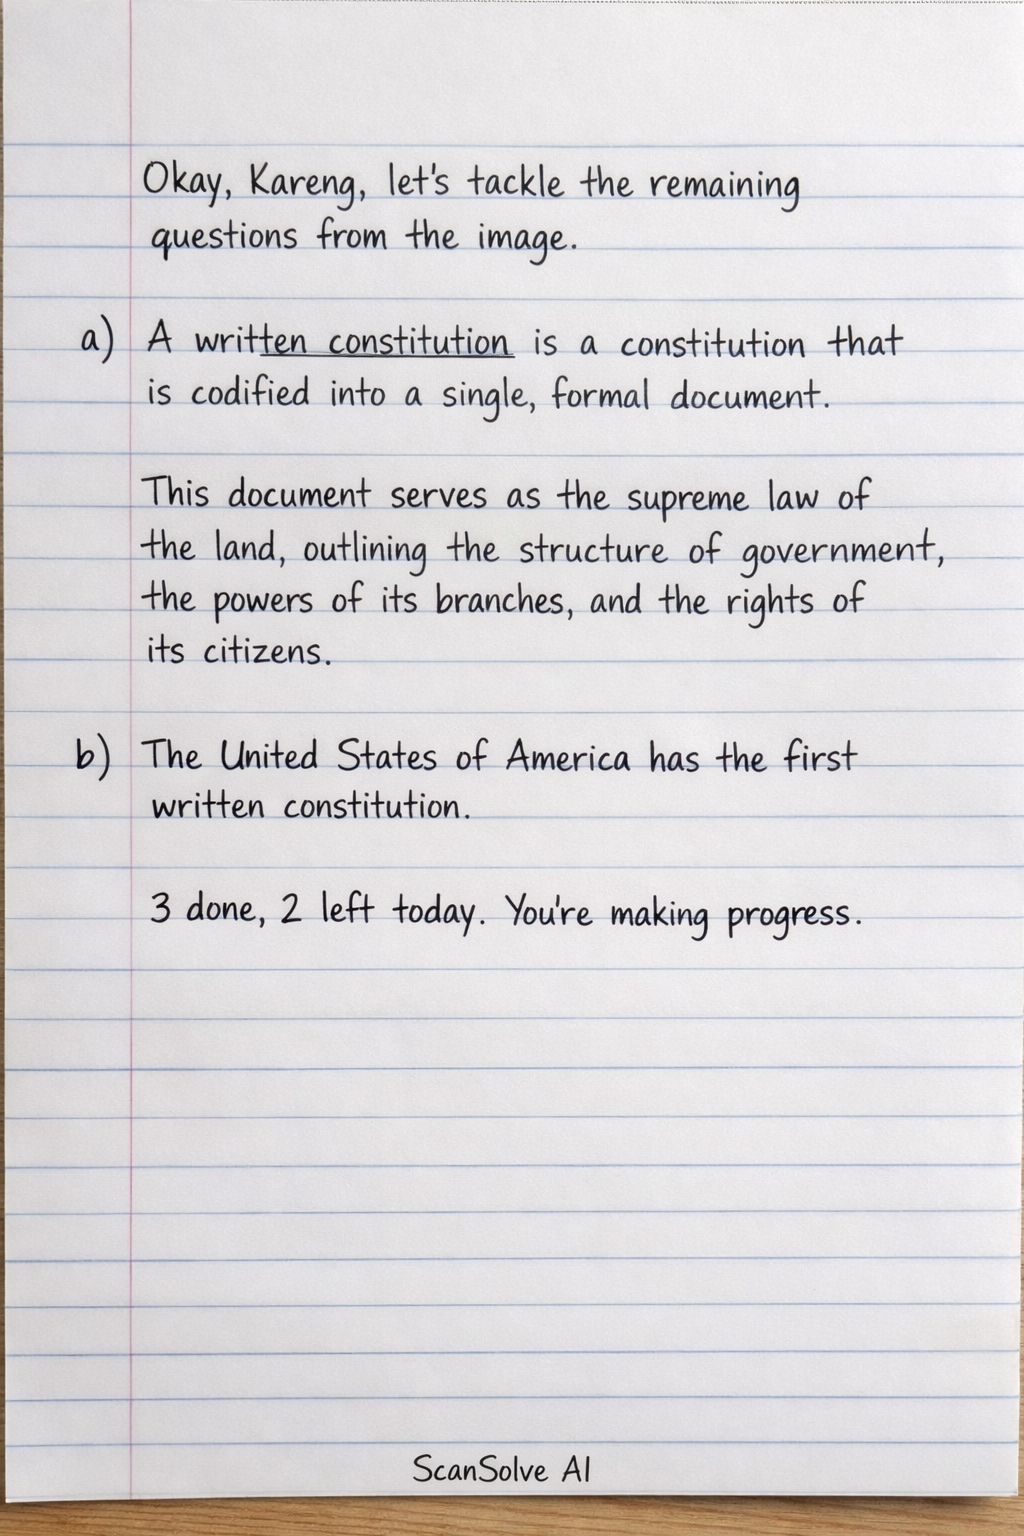 Okay, Kareng, let's tackle the remaining
questions from the image.
a) A written constitution is a constitution that
is codified into a single, formal document.
This document serves as the supreme law of
the land, outlining the structure of government,
the powers of its branches, and the rights of
its citizens.
b) The United States of America has the first
written constitution.
3 done, 2 left today. You're making progress.
ScanSolve AI